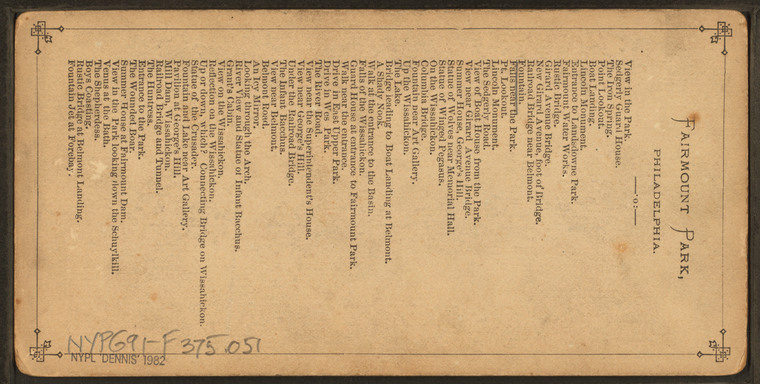 FAIRMOUNT PARK,
PHILADELPHIA.
—:o:—
View in the Park.
Sedgerly Guard House.
The Iron Spring.
Point Lookout.
Boat Landing.
Lincoln Monument.
Entrance to Landsdowne Park.
Fairmount Water Works.
Rustic Bridge.
Girard Avenue Bridge.
New Girard Avenue, foot of Bridge.
Railroad Bridge near Belmont.
Fountain.
Falls near the Park.
Pt. Lookout.
Lincoln Monument.
The Sedgerly Road.
View of Boat House from the Park.
View near Girard Avenue Bridge.
Summer House, George's Hill.
Statue of Wolves near Memorial Hall.
Statue of Winged Pegasus.
On the Wissahickon.
Columbia Bridge.
Fountain near Art Gallery.
Up the Wissahickon.
The Lake.
Bridge leading to Boat Landing at Belmont.
Shady Nook.
Walk at the entrance to the Basin.
Falls of the Wissahickon.
Guard House at entrance to Fairmount Park.
Walk near the entrance.
Drive in West Upper Park.
Drive in West Park.
The River Road.
View near the Superintendent's House.
View near George's Hill.
Under the Railroad Bridge.
The Infant Bacchus.
View near Belmont.
Belmont Road.
An Icy Mirror.
Looking through the Arch.
River View and Statue of Infant Bacchus.
Grant's Cabin.
View on the Wissahickon.
Reflection on the Wissahickon.
Up or down, which? Connecting Bridge on Wissahickon.
Statue of the Crusader.
Fountain and Lake near Art Gallery.
Pavilion at George's Hill.
Mill Dam, Wissahickon.
Railroad Bridge and Tunnel.
The Huntress.
Entrance to the Park.
The Wounded Boar.
Summer House at Fairmount Dam.
View in the Park looking down the Schuylkill.
Venus at the Bath.
The Shepherdess.
Boys Coasting.
Rustic Bridge at Belmont Landing.
Fountain Jet at Forebay.
NYPG91-F375.051
NYPL 'DENNIS' 1982